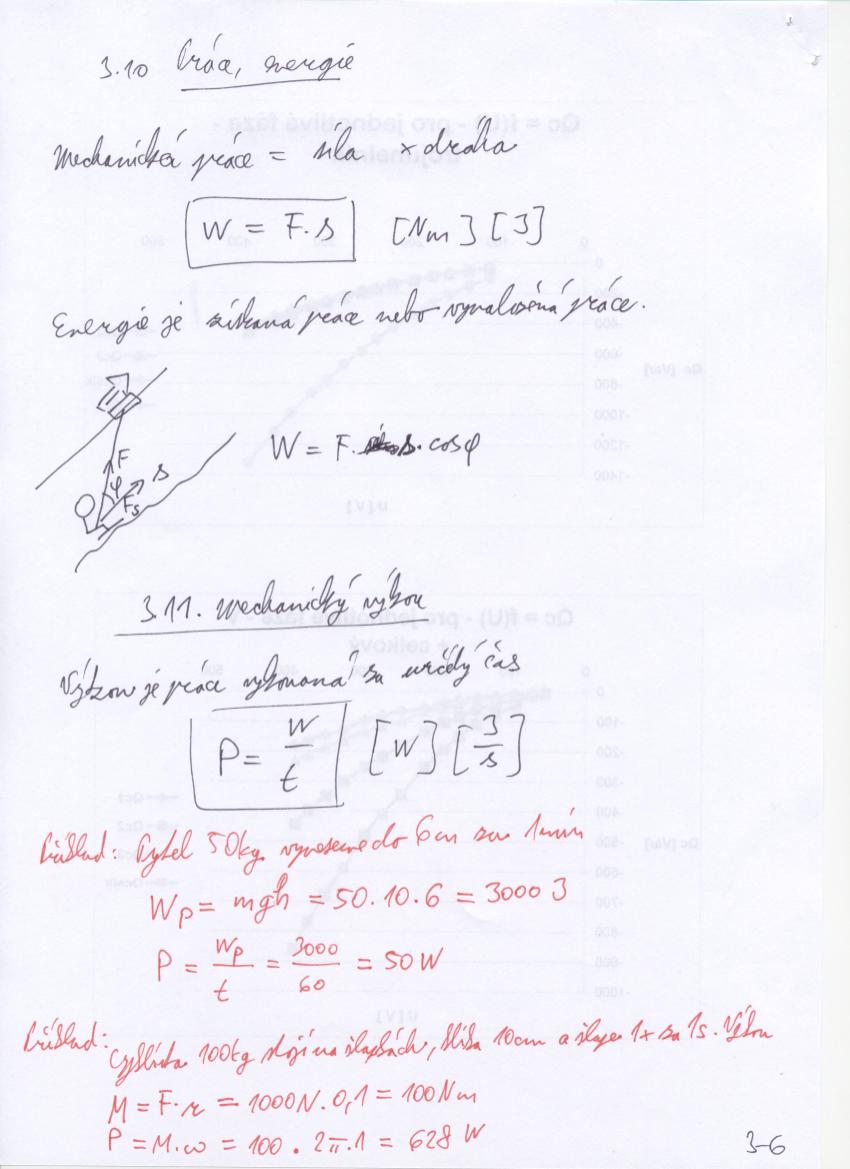 3.10 Práce, energie
Mechanická práce = síla × dráha
W = F·s [Nm] [J]
Energie je získaná práce nebo vynaložená práce.
F
φ
s
Fs
W = F· s· cosφ
3.11. Mechanický výkon
Výkon je práce vykonaná za určitý čas
P = W/t [W] [J/s]
Příklad: Pytel 50kg vyneseme do 6m za 1min
Wp = mgh = 50.10.6 = 3000 J
P = Wp/t = 3000/60 = 50W
Příklad:
Cyklista 100kg stojí na šlapkách, klika 10cm a šlape 1x za 1s. Výkon
M = F·r = 1000N.0,1 = 100Nm
P = M.ω = 100 . 2π.1 = 628 W
3-6